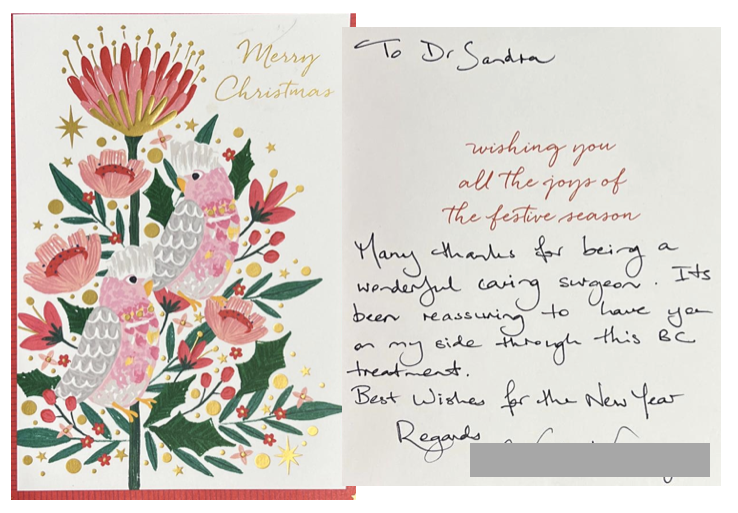 Merry
Christmas
To Dr Sandra
wishing you
all the joys of
the festive season
Many thanks for being a
wonderful caring surgeon. Its
been reassuring to have you
on my side through this BC
treatment.
Best Wishes for the New Year
Regards